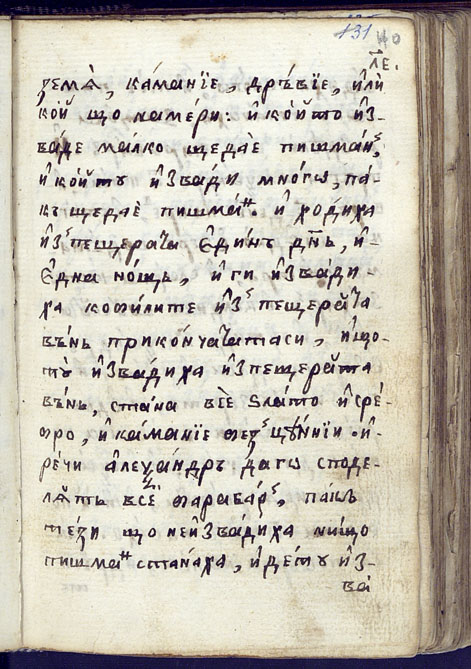 131 40
л҃е.
ꙋемѧ̀, ка́манїе, дрѣ́вїе, и҆лѝ
ко́й що наме́ри: и҆ ко́йто и҆з-
ва́де ма́лко щеда̀е пишма́н,
и҆ ко́йтꙋ и҆зва́ди мно́гѡ, па́-
къ щеда̀е пишма́н. и҆ хо́диха
и҆з пещера́та є҆ди́нъ дн҃ь, и҆-
є҆дна но́щь, и҆ ги и҆зва́ди-
ха коби́лите и҆з пещера́та
въ́нь при конча́та си, и҆ що-
то̀ и҆зва́диха и҆з пещера́та
въ́нь, ста́на всѐ ѕла́то и҆ сре́-
бро, и҆ ка́манїе безцѣ́ннїи. и҆-
ре́чи а҆леѯа́ндръ да гѡ споде-
лѧ́тъ всѐ бараба́р, па́къ
те́зи що не и҆зва́диха ни́що
пишма́н стана́ха, и҆ де́тꙋ и҆з-
ва́